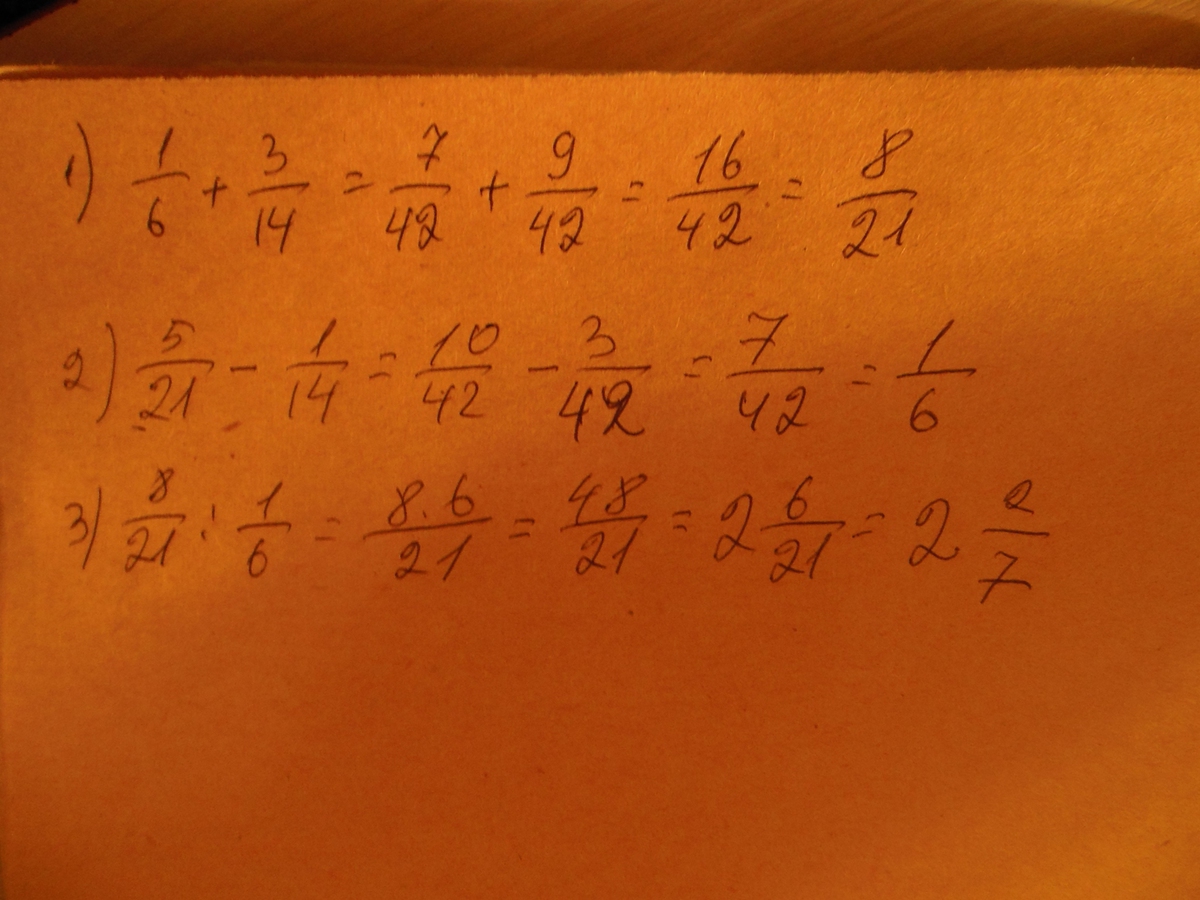 1) 1/6 + 3/14 = 7/42 + 9/42 = 16/42 = 8/21
2) 5/21 - 1/14 = 10/42 - 3/42 = 7/42 = 1/6
3) 8/21 : 1/6 = 8·6/21 = 48/21 = 2 6/21 = 2 2/7